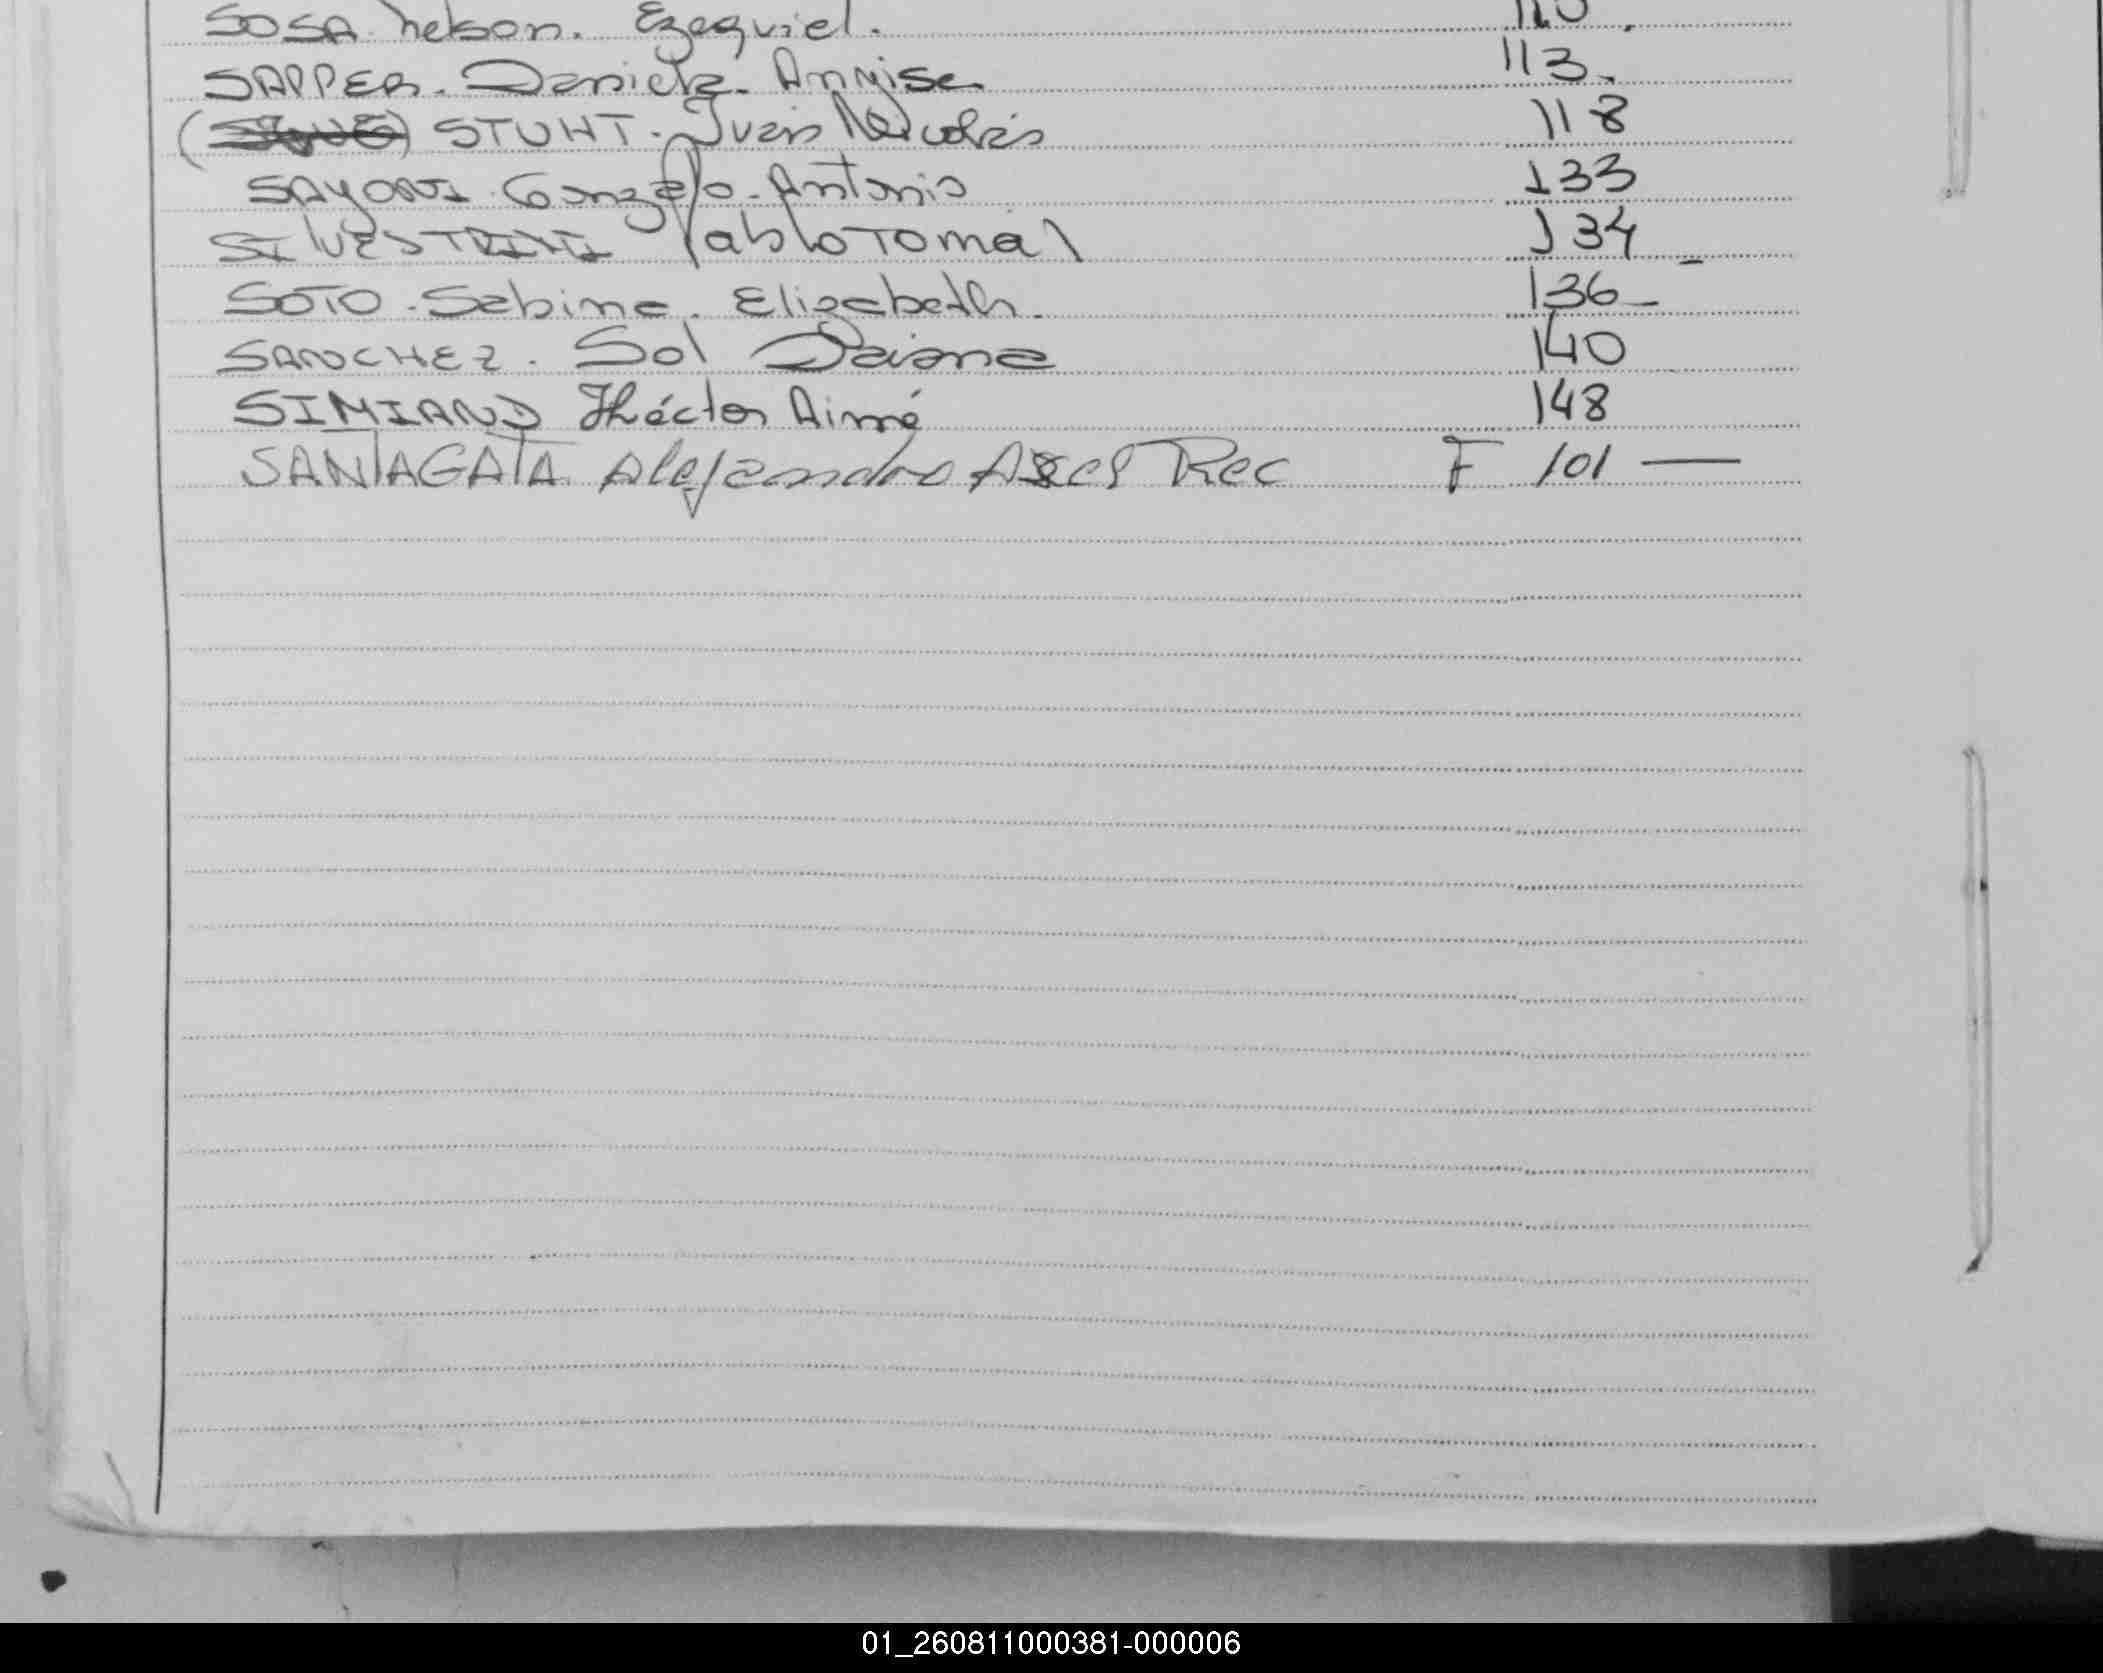 SOSA Nelson. Ezequiel. 110.
SAPPER. Daniela. Annise 113.
STUHT. Iván Nicolás 118
SAYONI. Gonzalo. Antonio 133
SILVESTRINI Pablo Tomas 134 _
SOTO. Sabina. Elizabeth. 136_
SANCHEZ. Sol Daiana 140
SIMIAND Héctor Aimé 148
SANTAGATA Alejandro Axel Rec F 101 —
01_260811000381-000006